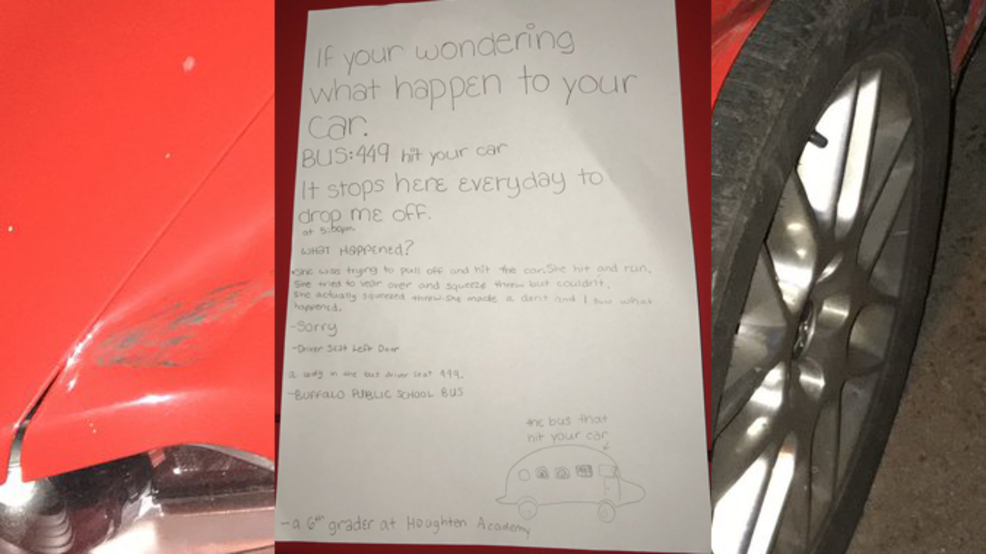 If your wondering
what happen to your
car.
BUS:449 hit your car
It stops here everyday to
drop me off.
at 5:00pm
WHAT Happened?
•She was trying to pull off and hit the car. She hit and run.
She tried to vear over and squeeze threw but couldn't.
She actually squeezed threw. She made a dent and I saw what
happened.
-Sorry
-Driver Seat Left Door
a lady in the bus driver seat 449.
-BUFFALO PUBLIC SCHOOL BUS
the bus that
hit your car
-a 6th grader at Houghten Academy